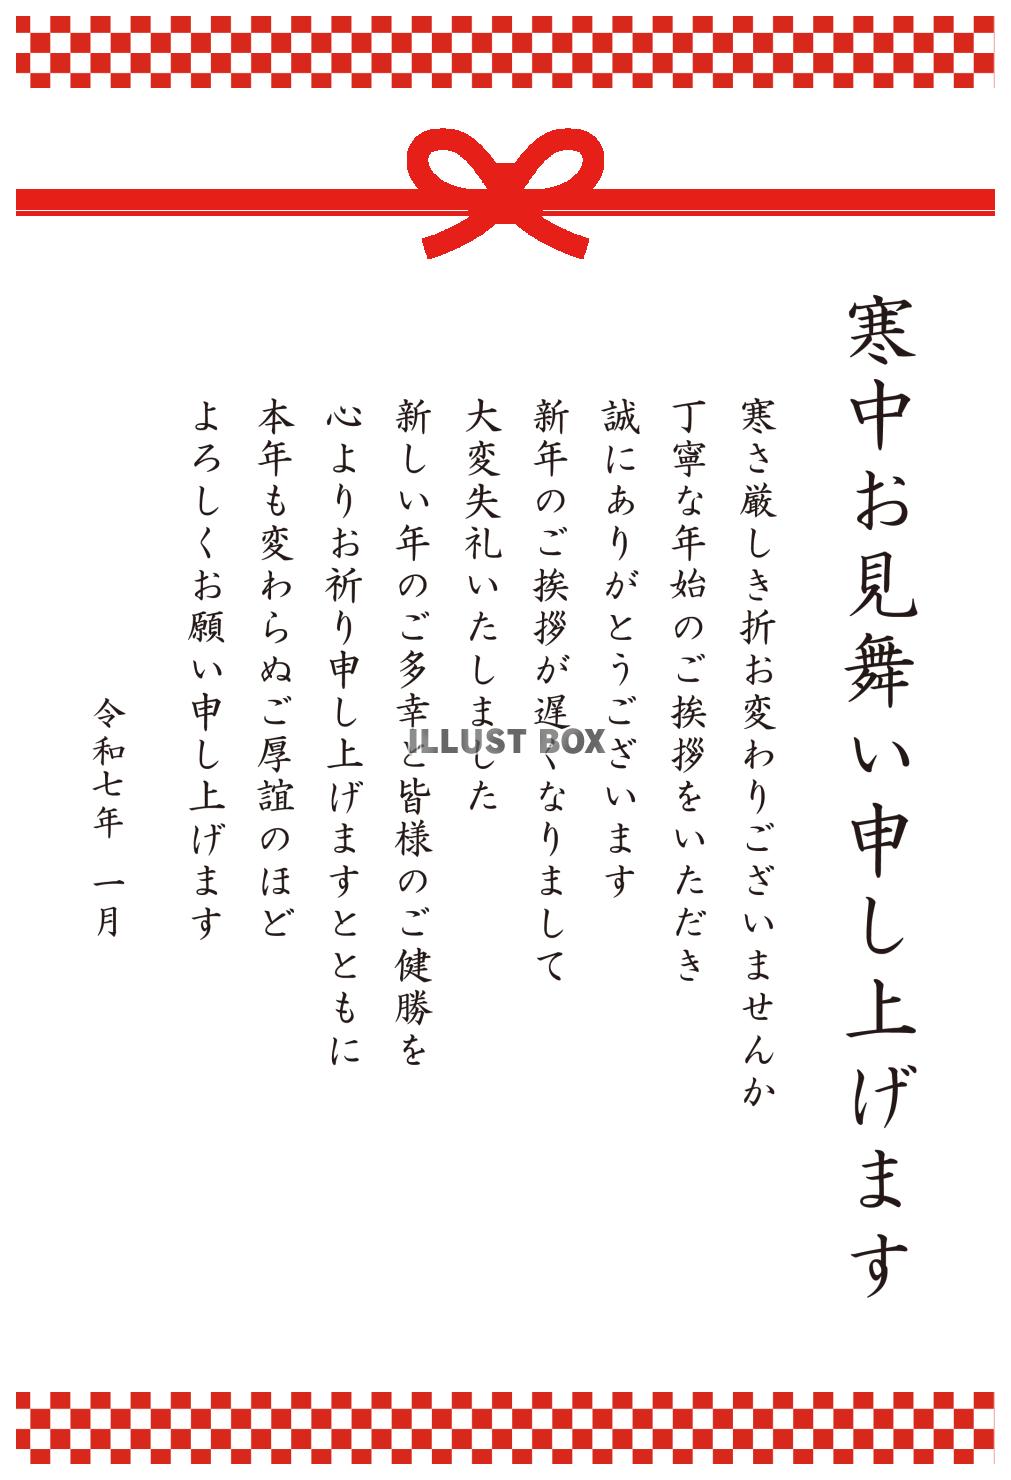 寒中お見舞い申し上げます
寒さ厳しき折お変わりございませんか
丁寧な年始のご挨拶をいただき
誠にありがとうございます
新年のご挨拶が遅くなりまして
大変失礼いたしました
新しい年のご多幸と皆様のご健勝を
心よりお祈り申し上げますとともに
本年も変わらぬご厚誼のほど
よろしくお願い申し上げます
令和七年 一月
ILLUST BOX